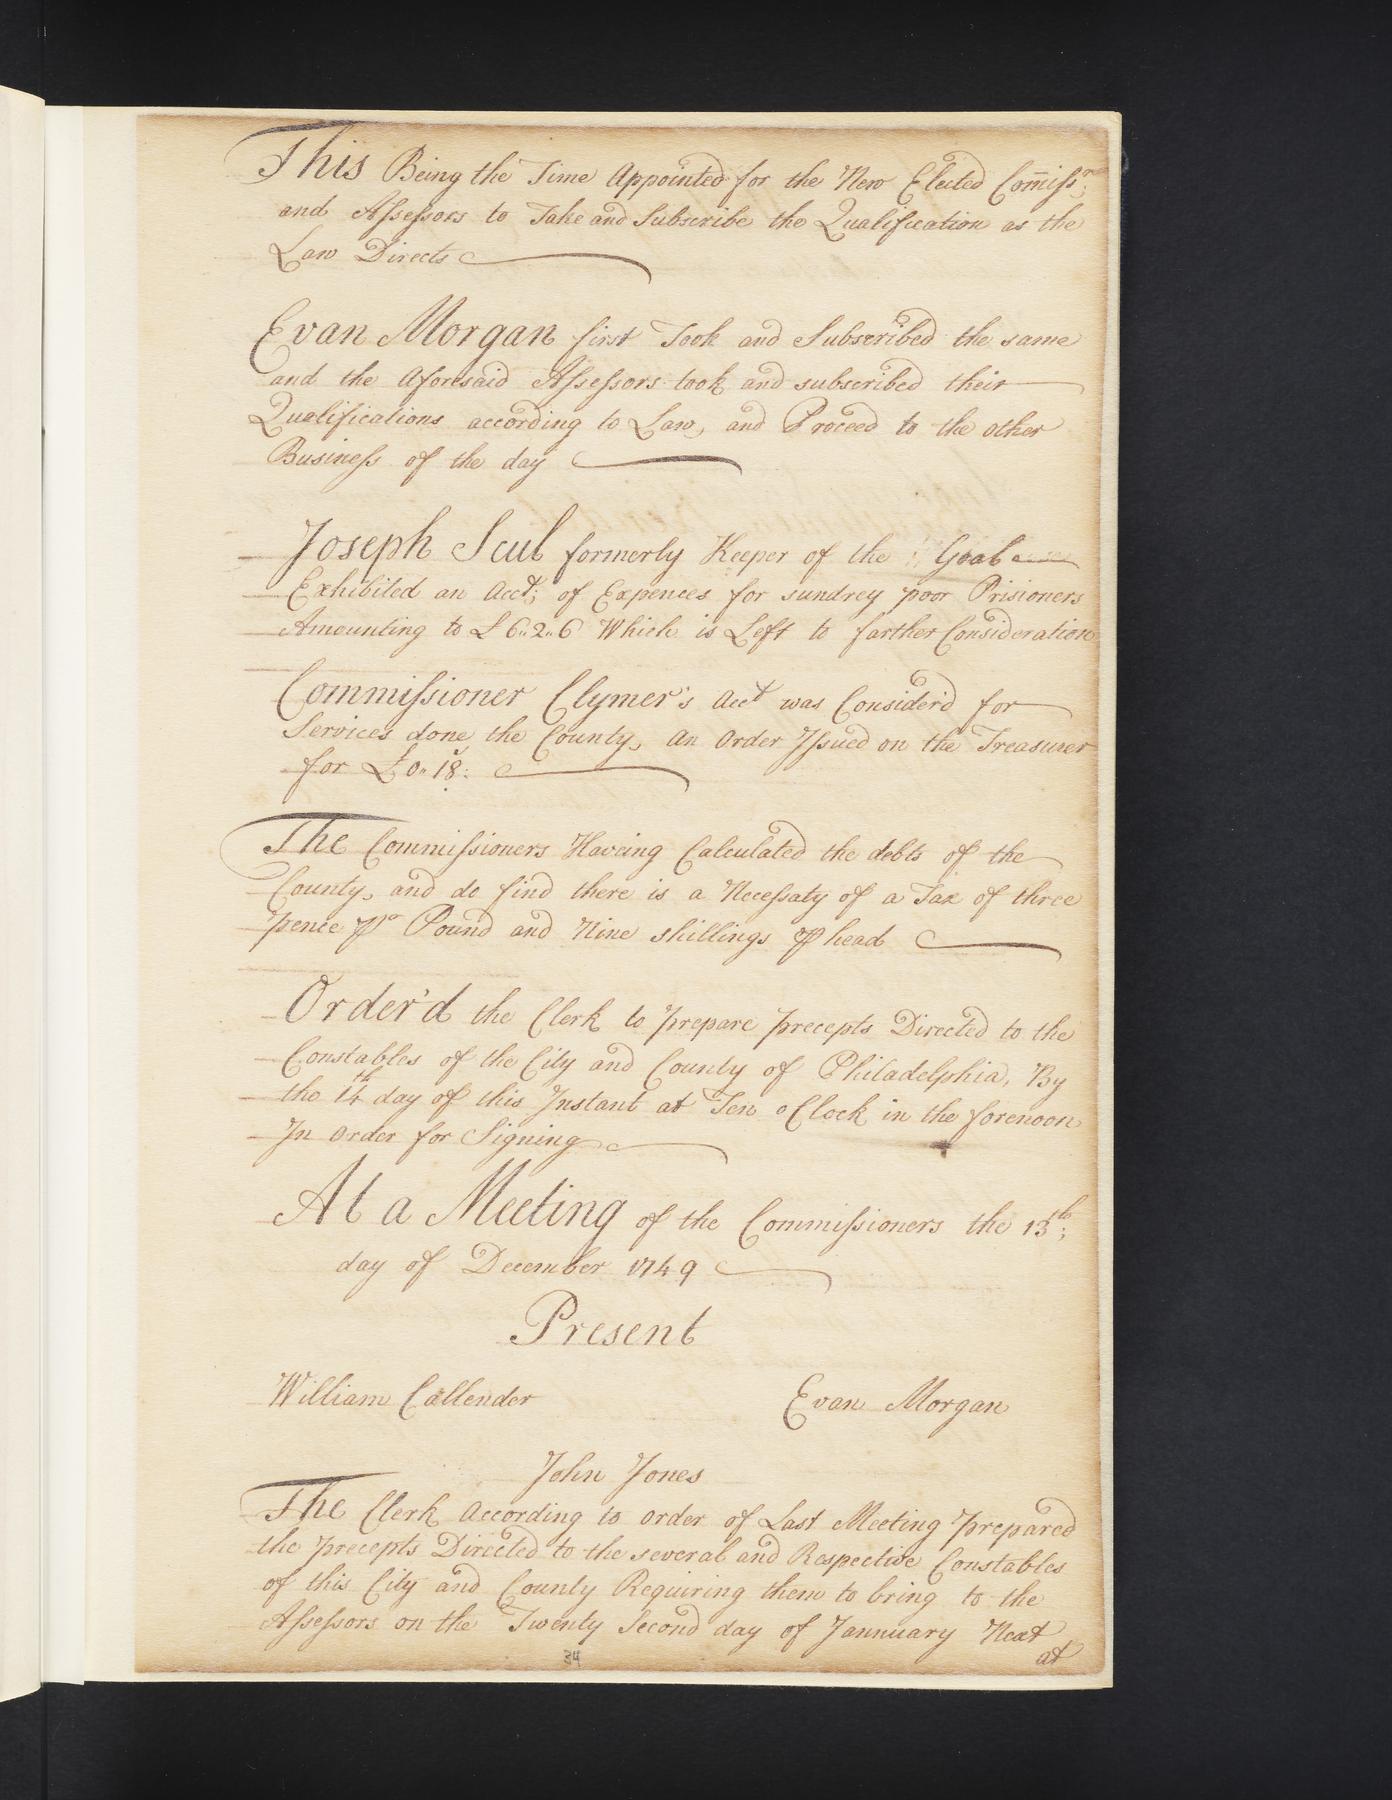 This Being the Time Appointed for the New Elected Com̄issrs;
and Assessors to Take and Subscribe the Qualification as the
Law Directs
Evan Morgan first Took and Subscribed the same
and the Aforesaid Assessors took and subscribed their
Qualifications according to Law, and Proceed to the other
Business of the day
Joseph Scul formerly Keeper of the Goal
Exhibited an Acct; of Expences for sundrey poor Prisioners
Amounting to £ 6..2..6 Which is Left to farther Consideration
Commissioner Clymer's Acct was Consider'd for
Services done the County, An Order Issued on the Treasurer
for £0..18:
The Commissioners Haveing Calculated the debts of the
County, and do find there is a Necessaty of a Tax of three
pence pr Pound and Nine shillings p head
Order'd the Clerk to prepare precepts Directed to the
Constables of the City and County of Philadelphia, By
the 14th day of this Instant at Ten o Clock in the forenoon
In Order for Signing
At a Meeting of the Commissioners the 13th;
day of December 1749
Present
William Callender Evan Morgan
John Jones
The Clerk According to order of Last Meeting prepared
the precepts Directed to the several and Respective Constables
of this City and County Requiring them to bring to the
Assessors on the Twenty Second day of Jannuary Next
at
34